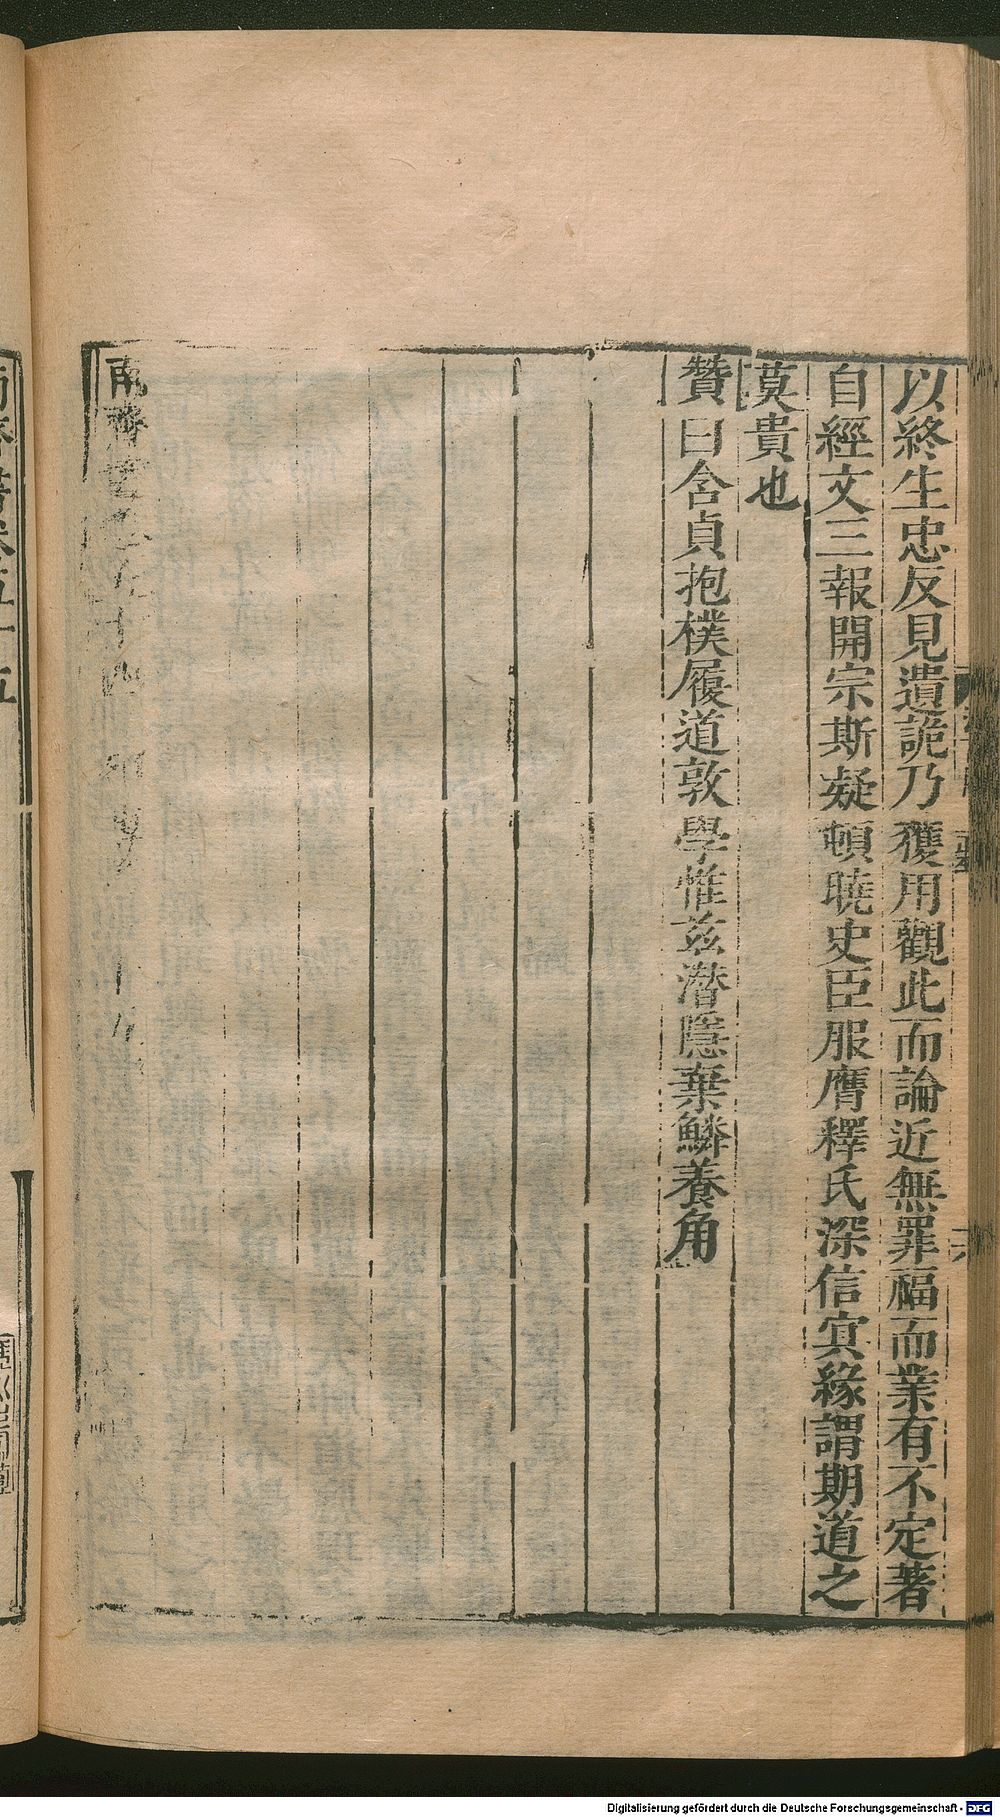 以終生忠反見遺詭乃獲用觀此而論近無罪福而業有不定著
自經文三報開宗斯疑頓曉史臣服膺釋氏深信㝠緣謂期道之
莫貴也
贊曰含貞抱樸履道敦學惟茲潛隱棄鱗養角
南齊書
Digitalisierung gefördert durch die Deutsche Forschungsgemeinschaft - DFG